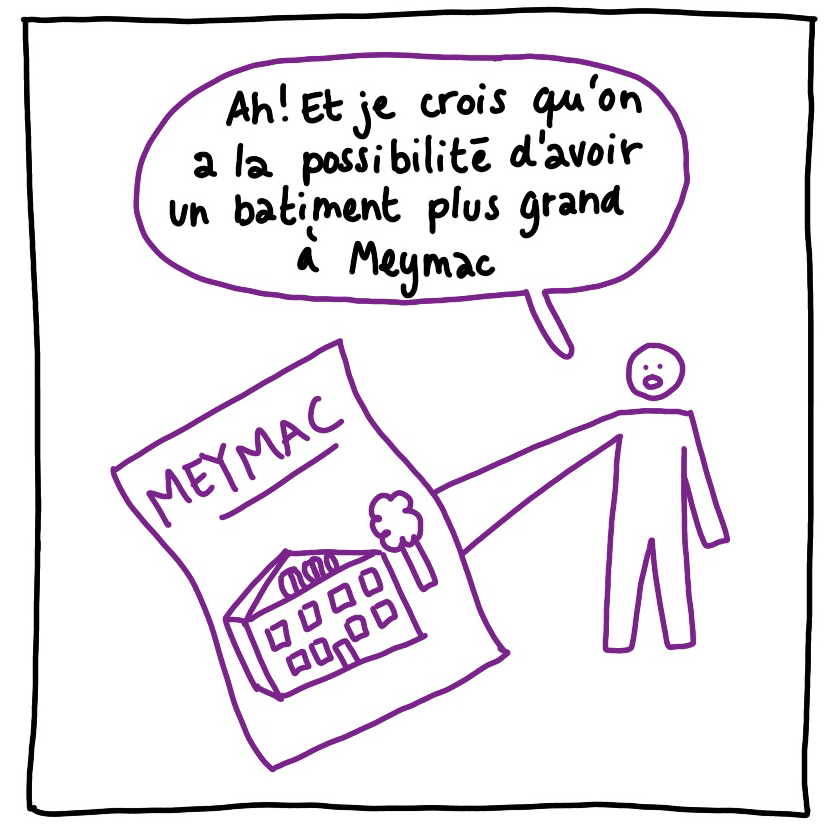 Ah! Et je crois qu'on
a la possibilité d'avoir
un batiment plus grand
à Meymac
MEYMAC